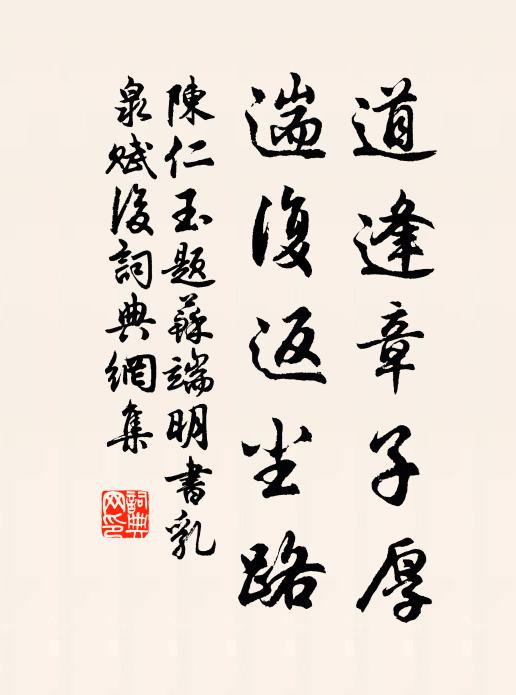 道逢章子厚
遄復返尘路
陳仁玉题蘇端明書乳
泉赋後詞典網集
詞典网印